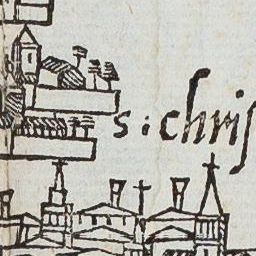 s : chris